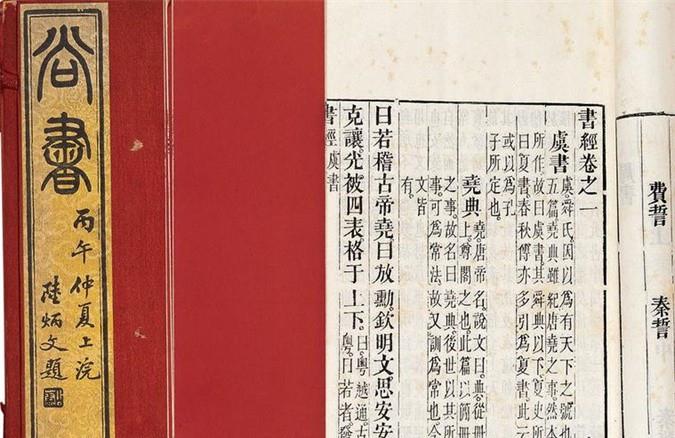 尚書
丙午仲夏上浣
陸炳文題
費誓
秦誓
書經卷之一
虞書
虞。舜氏。因以為有天下之號也
五篇。堯典雖紀唐堯之事。然本
所作。故曰虞書。其舜典以下。夏史所
曰夏書。春秋傳亦多引為夏書。此云
或以為孔
子所定也。
堯典
堯。唐帝名。說文曰。典。從冊
上。尊閣之也。此篇以簡冊
之事。故名曰堯典。後世以其所
事。可為常法。故又訓為常也
文皆
有。
曰若稽古帝堯曰放勳欽明文思安安
克讓。光被四表格于上下。
曰。粵越通。古
粵。曰若者
書經 虞書